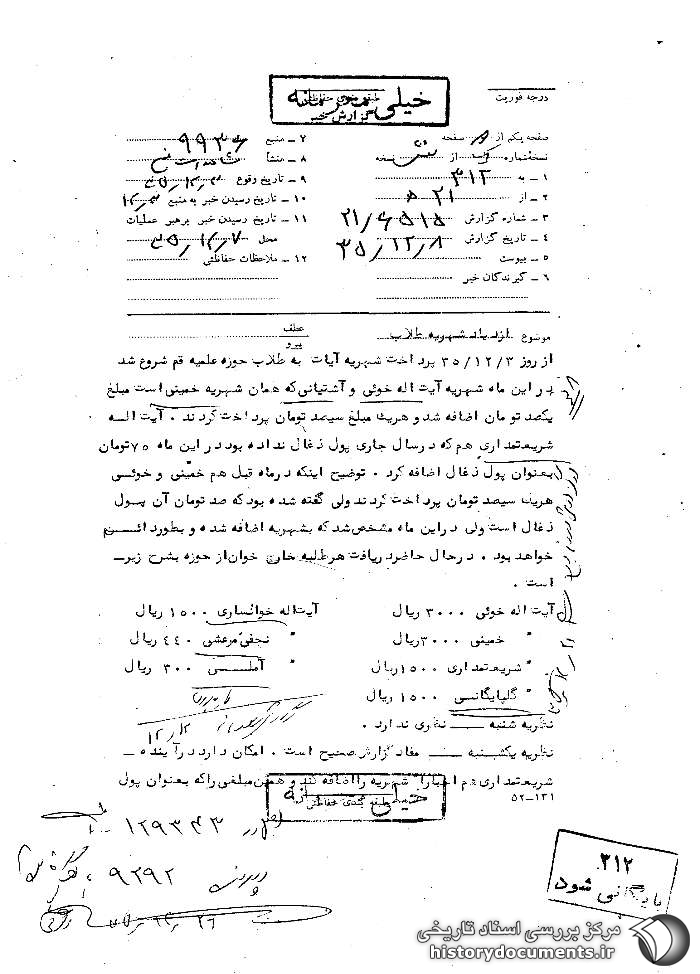 خیلی محرمانه
گزارش خبر
درجه فوریت
صفحه یکم از صفحه
نسخه شماره از نسخه
۱ - به ۳۱۲
۲ - از ۲۱ ه
۳ - شماره گزارش ۲۱/۶۵۱۵
۴ - تاریخ گزارش ۳۵/۱۲/۸
۵ - پیوست
۶ - گیرندگان خبر
۷ - منبع ۹۹۳۶
۸ - منشأ
۹ - تاریخ وقوع
۱۰ - تاریخ رسیدن خبر به منبع
۱۱ - تاریخ رسیدن خبر برهبر عملیات
محل
۱۲ - ملاحظات حفاظتی
موضوع ازدیاد شهریه طلاب
عطف
پیرو
از روز ۳۵/۱۲/۳ پرداخت شهریه آیات به طلاب حوزه علمیه قم شروع شد
در این ماه شهریه آیت اله خوئی و آشتیانی که همان شهریه خمینی است مبلغ
یکصد تومان اضافه شد و هریک مبلغ سیصد تومان پرداخت کردند . آیت اله
شریعتمداری هم که در سال جاری پول ذغال نداده بود در این ماه ۷۵ تومان
بعنوان پول ذغال اضافه کرد . توضیح اینکه در ماه قبل هم خمینی و خوئی
هریک سیصد تومان پرداخت کردند ولی گفته شده بود که صد تومان آن پول
ذغال است ولی در این ماه مشخص شد که بشهریه اضافه شده و بطور دائم
خواهد بود . در حال حاضر دریافت هر طلبه خارج خوان از حوزه بشرح زیر
است .
آیت اله خوئی ۳۰۰۰ ریال آیت اله خوانساری ۱۵۰۰ ریال
" خمینی ۳۰۰۰ ریال " نجفی مرعشی ۴۴۰ ریال
" شریعتمداری ۱۵۰۰ ریال " آملی ۳۰۰ ریال
" گلپایگانی ۱۵۰۰ ریال
نظریه شنبه ــ نظری ندارد .
نظریه یکشنبه ــ مفاد گزارش صحیح است . امکان دارد در آینده
شریعتمداری هم اجبارا" شهریه را اضافه کند و همین مبلغی را که بعنوان پول
۵۲-۱۳۱
خیلی محرمانه
طبقه بندی حفاظتی
۱۲۹۳۴۳
۹۲۹۲
۳۱۲
بایگانی شود
مرکز بررسی اسناد تاریخی
historydocuments.ir